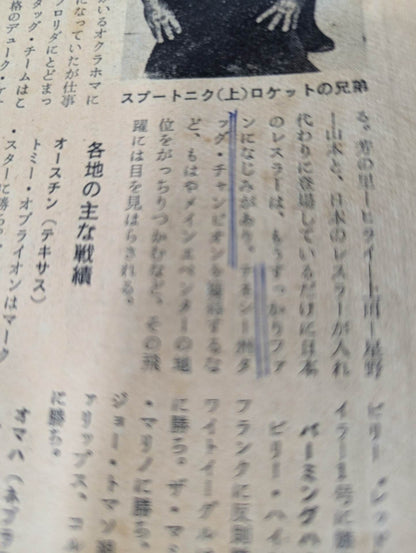 スプートニク(上)ロケットの兄弟
る。芳の里―ヒライ―上田―星野
―山本と、日本のレスラーが入れ
代わりに登場しているだけに日本
のレスラーは、もうすっかりファ
ンになじみがあり、テネシー州タ
ッグ・チャンピオンを獲得するな
ど、もはやメインエベンターの地
位をがっちりつかむなど、その飛
躍には目を見はらされる。
各地の主な戦績
オースチン(テキサス)
トミー・オブライオンはマーク
・スターに勝ち
がいるオクラホマに
になっていたが仕事
フロリダにとどまっ
タッグ・チームはこ
格のデューク・ケ
ビリー・レッド
イラー1号に勝
バーミングハ
ビリー・ハイ
フランクに反則
ワイトイーグル
に勝ち。ザ・マ
・マリノに勝ち。
ジョー・トマソ
ァリップス、コル
に勝ち。
オマハ(ネブラ